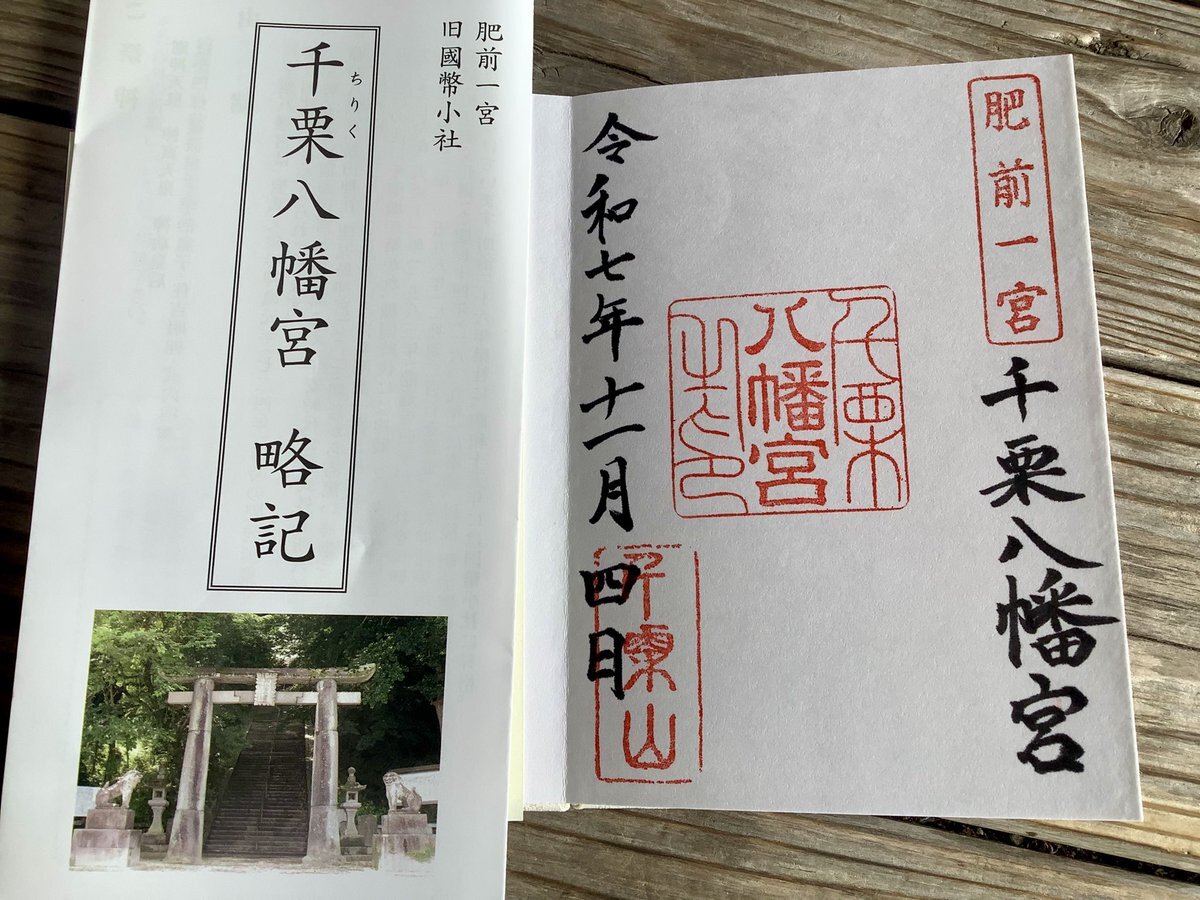 肥前一宮
旧國幣小社
千栗八幡宮 略記
ちりく
肥前一宮
千栗八幡宮
千栗
八幡宮
之印
令和七年十一月四日
千栗山